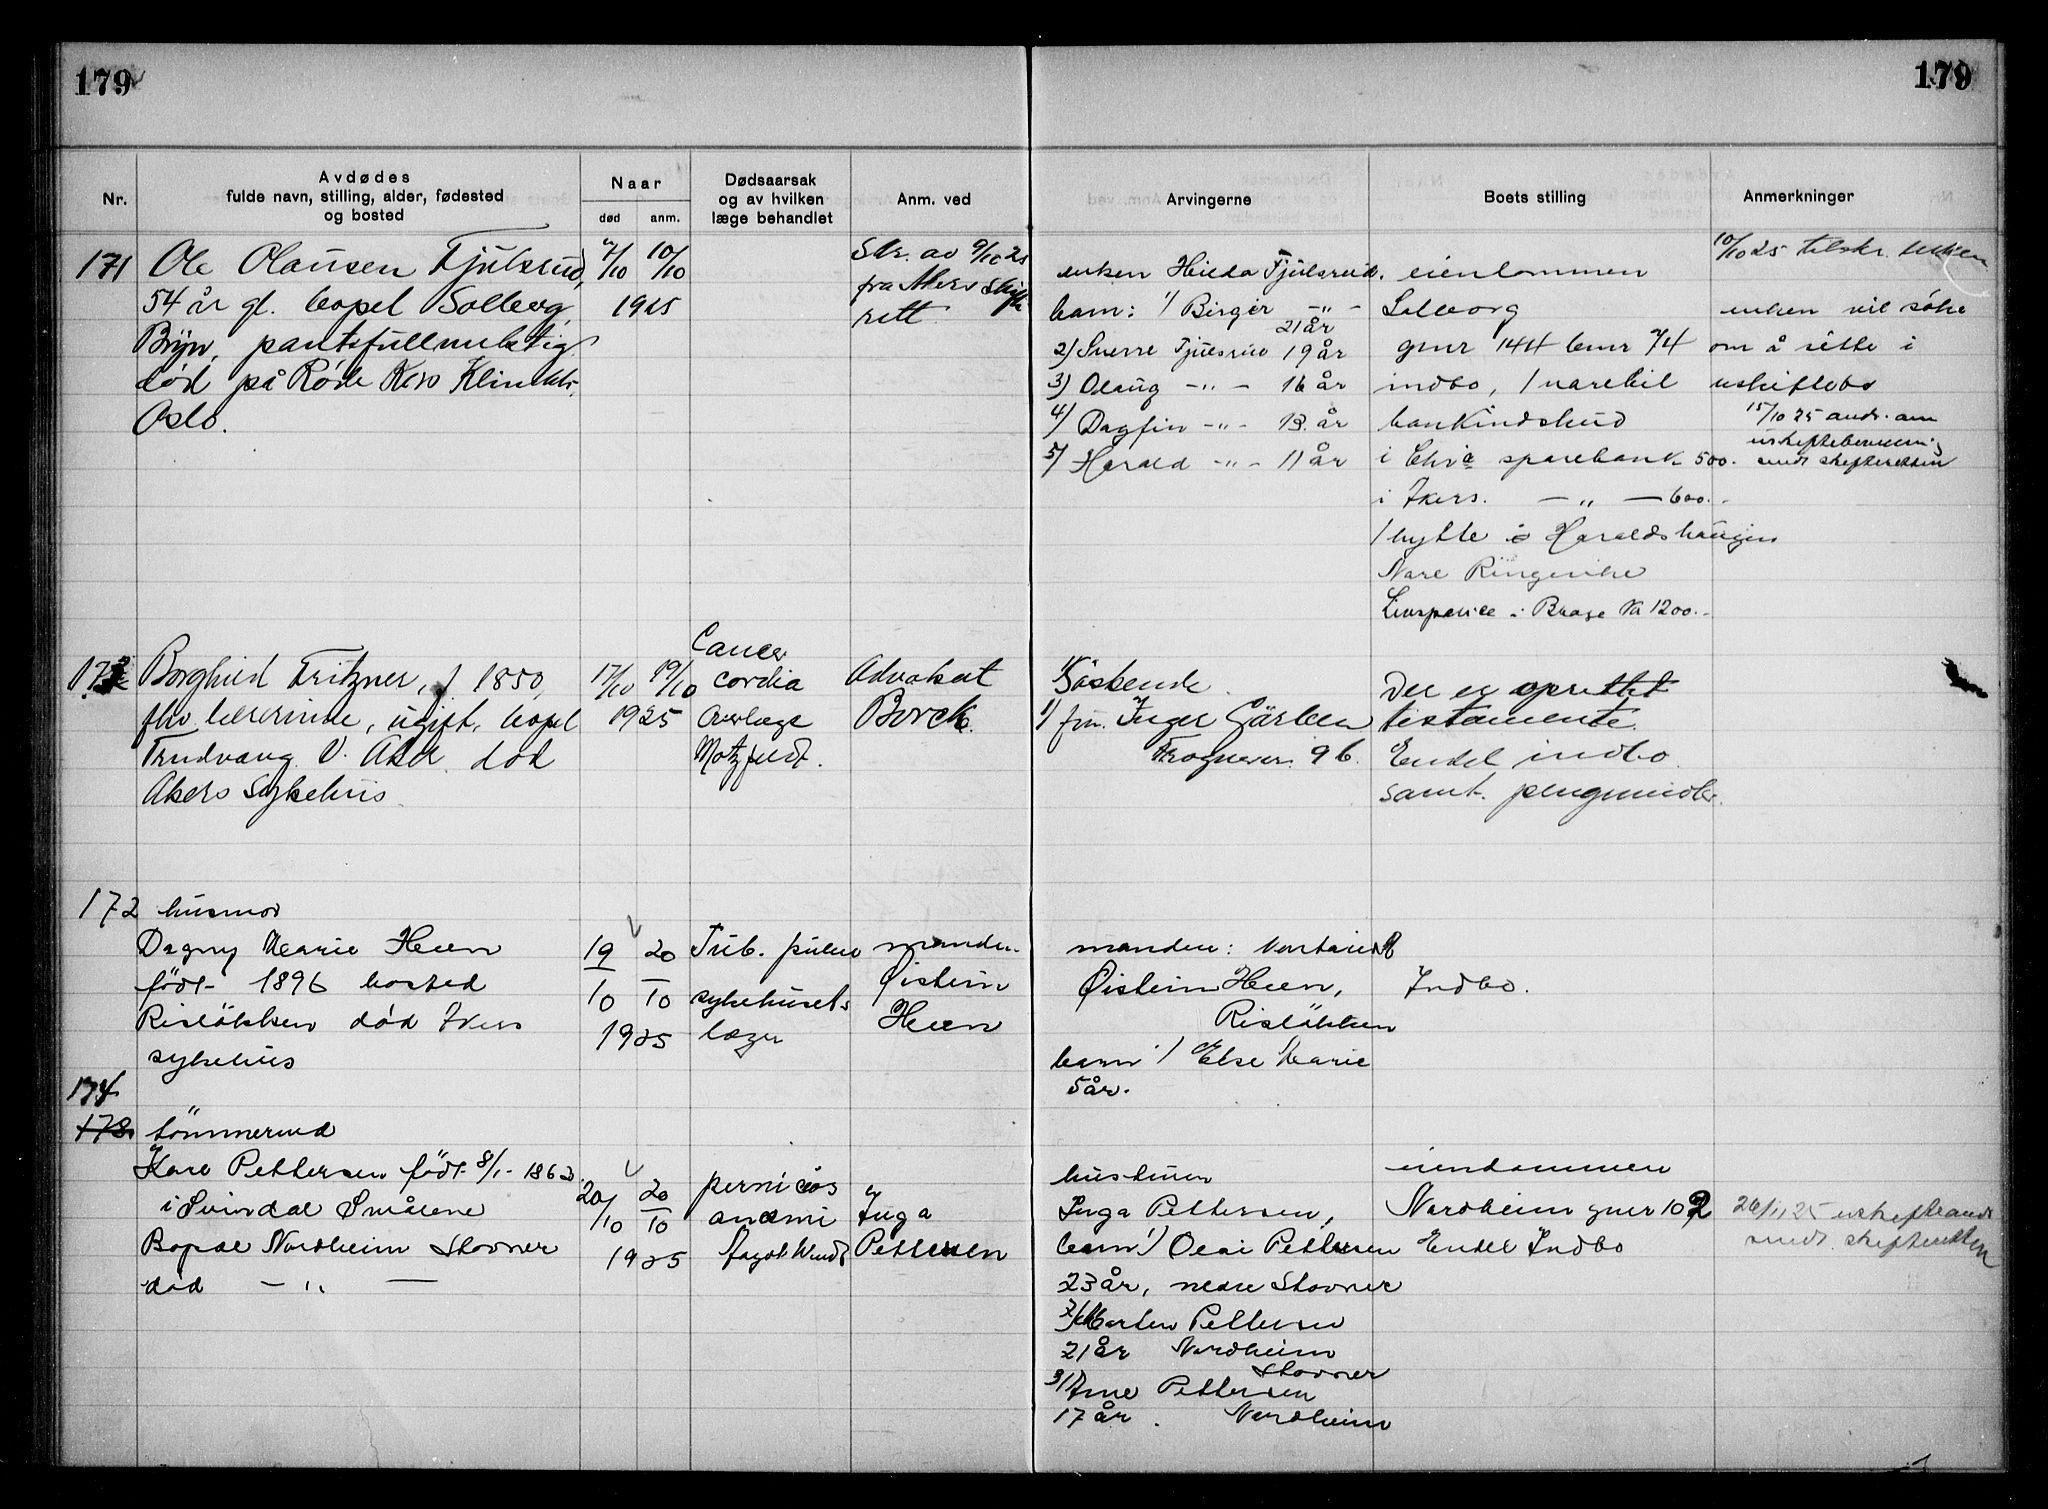 179
179
Nr.
Avdødes
fulde navn, stilling, alder, fødested
og bosted
Naar
død
anm.
Dødsaarsak
og av hvilken
læge behandlet
Anm. ved
Arvingerne
Boets stilling
Anmerkninger
171
Ole Olausen Fjulsrud,
54 år gl. bopel Solberg
Bryn, pantefullmektig
død på Røde Kors Klinikk,
Oslo.
7/10 10/10
1925
Skr. av 9/10 25
fra Akers skifte
rett
enken Hilda Fjulsrud.
barn: 1/ Birger - " -
21 år
2) Sverre Fjulsrud 19 år
3) Olaug - " - 16 år
4) Dagfin - " - 13 år
5) Harald - " - 11 år
eiendommen
Solborg
gnr 144 bnr 74
indbo, 1 varebil
bankindskud
i Chra sparebank 500.-
i Akers. - " - 600.-
1 hytte i Haraldshaugen
Nore Ringerike
Livspolice i Brage Kr 1200.-
10/10 25 tilskr. enken
enken vil søke
om å sitte i
uskiftebo
15/10 25 and. om
uskiftebevilling
sendt skifteretten
Borghild Fritzner, f. 1850,
fhv. lererinde, ugift, bopel
Trudvang V. Aker død
Akers Sykehus.
17/10 19/10
1925
Cancer
cordia
Overlege
Motzfeldt.
Advokat
Borck.
Söskende
1/ frn. Inger
Frognerv. 96.
Der er oprettet
testamente.
Endel indbo
samt. pengemidler.
172
husmor
Dagny Marie Heen
født 1896 bosted
Risløkken død Akers
sykehus
19/10 20/10
1925
Tub. pulm
sykehusets
læger
manden
Øistein
Heen
manden:
Øistein Heen,
Risløkken
barn 1/ Else Marie
5 år.
Indbo.
174
173
tømmermd
Kare Pettersen født 8/1- 1863
i Svindal Smålene
Bopæl Nordheim Stovner
død - " -
20/10 20/10
1925
perniciøs
anæmi
Inga
Pettersen
hustruen
Inga Pettersen,
barn 1/ Olai Pettersen
23 år, nedre Stovner
2/ Morten Pettersen
21 år Nordheim
Stovner
3/ Arne Pettersen
17 år. Nordheim
eiendommen
Nordheim gnr 102
Endel Indbo
26/11 25 uskifteand
sendt skifteretten